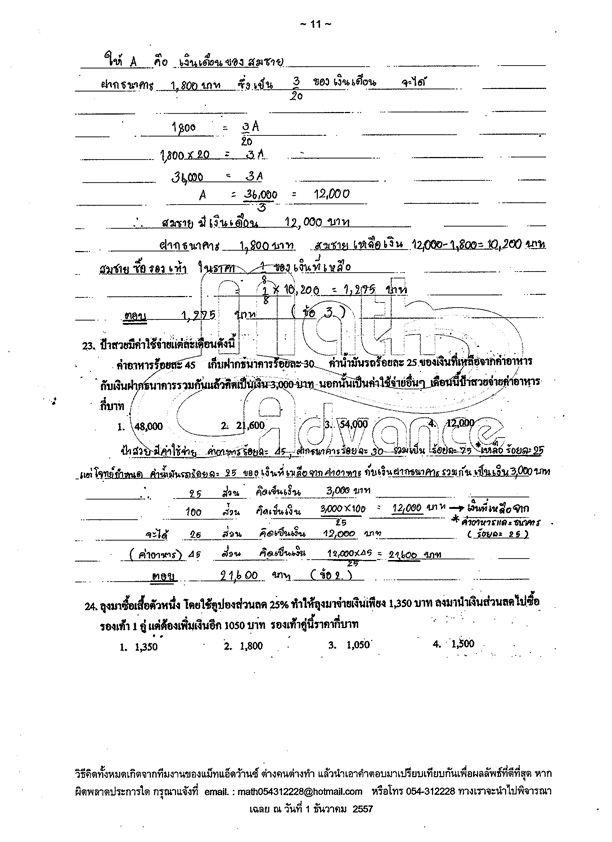 ~ 11 ~
ให้ A คือ เงินเดือนของสมชาย
ฝากธนาคาร 1,800 บาท ซึ่งเป็น 3/20 ของเงินเดือน จะได้
1,800 = 3A/20
1,800 × 20 = 3A
36,000 = 3A
A = 36,000/3 = 12,000
∴ สมชาย มีเงินเดือน 12,000 บาท
ฝากธนาคาร 1,800 บาท สมชาย เหลือเงิน 12,000-1,800 = 10,200 บาท
สมชาย ซื้อรองเท้า ในราคา 1/8 ของเงินที่เหลือ
1/8 × 10,200 = 1,275 บาท
ตอบ 1,275 บาท (ข้อ 3.)
23. ป้าสวยมีค่าใช้จ่ายแต่ละเดือนดังนี้
ค่าอาหารร้อยละ 45 เก็บฝากธนาคารร้อยละ 30 ค่าน้ำมันรถร้อยละ 25 ของเงินที่เหลือจากค่าอาหาร
กับเงินฝากธนาคารรวมกันแล้วคิดเป็นเงิน 3,000 บาท นอกนั้นเป็นค่าใช้จ่ายอื่นๆ เดือนนี้ป้าสวยจ่ายค่าอาหาร
กี่บาท
1. 48,000 2. 21,600 3. 54,000 4. 12,000
ป้าสวย มีค่าใช้จ่าย ค่าอาหารร้อยละ 45, ฝากธนาคารร้อยละ 30 รวมเป็น ร้อยละ 75 *เหลือ ร้อยละ 25
แต่โจทย์กำหนด ค่าน้ำมันรถร้อยละ 25 ของเงินที่เหลือจากค่าอาหาร กับเงินฝากธนาคาร รวมกัน เป็นเงิน 3,000 บาท
∴ 25 ส่วน คิดเป็นเงิน 3,000 บาท
100 ส่วน คิดเป็นเงิน 3,000×100/25 = 12,000 บาท → เงินที่เหลือจาก
* ค่าอาหารและธนาคาร
จะได้ 25 ส่วน คิดเป็นเงิน 12,000 บาท (ร้อยละ 25)
(ค่าอาหาร) 45 ส่วน คิดเป็นเงิน 12,000×45/25 = 21,600 บาท
ตอบ 21,600 บาท (ข้อ 2.)
24. ลุงมาซื้อเสื้อตัวหนึ่ง โดยใช้คูปองส่วนลด 25% ทำให้ลุงมาจ่ายเงินเพียง 1,350 บาท ลุงมานำเงินส่วนลดไปซื้อ
รองเท้า 1 คู่ แต่ต้องเพิ่มเงินอีก 1050 บาท รองเท้าคู่นี้ราคากี่บาท
1. 1,350 2. 1,800 3. 1,050 4. 1,500
Math
Advance
วิธีคิดทั้งหมดเกิดจากทีมงานของแม็ทแอ็ดว้านซ์ ต่างคนต่างทำ แล้วนำเอาคำตอบมาเปรียบเทียบกันเพื่อผลลัพธ์ที่ดีที่สุด หาก
ผิดพลาดประการใด กรุณาแจ้งที่ email. : math054312228@hotmail.com หรือโทร 054-312228 ทางเราจะนำไปพิจารณา
เฉลย ณ วันที่ 1 ธันวาคม 2557